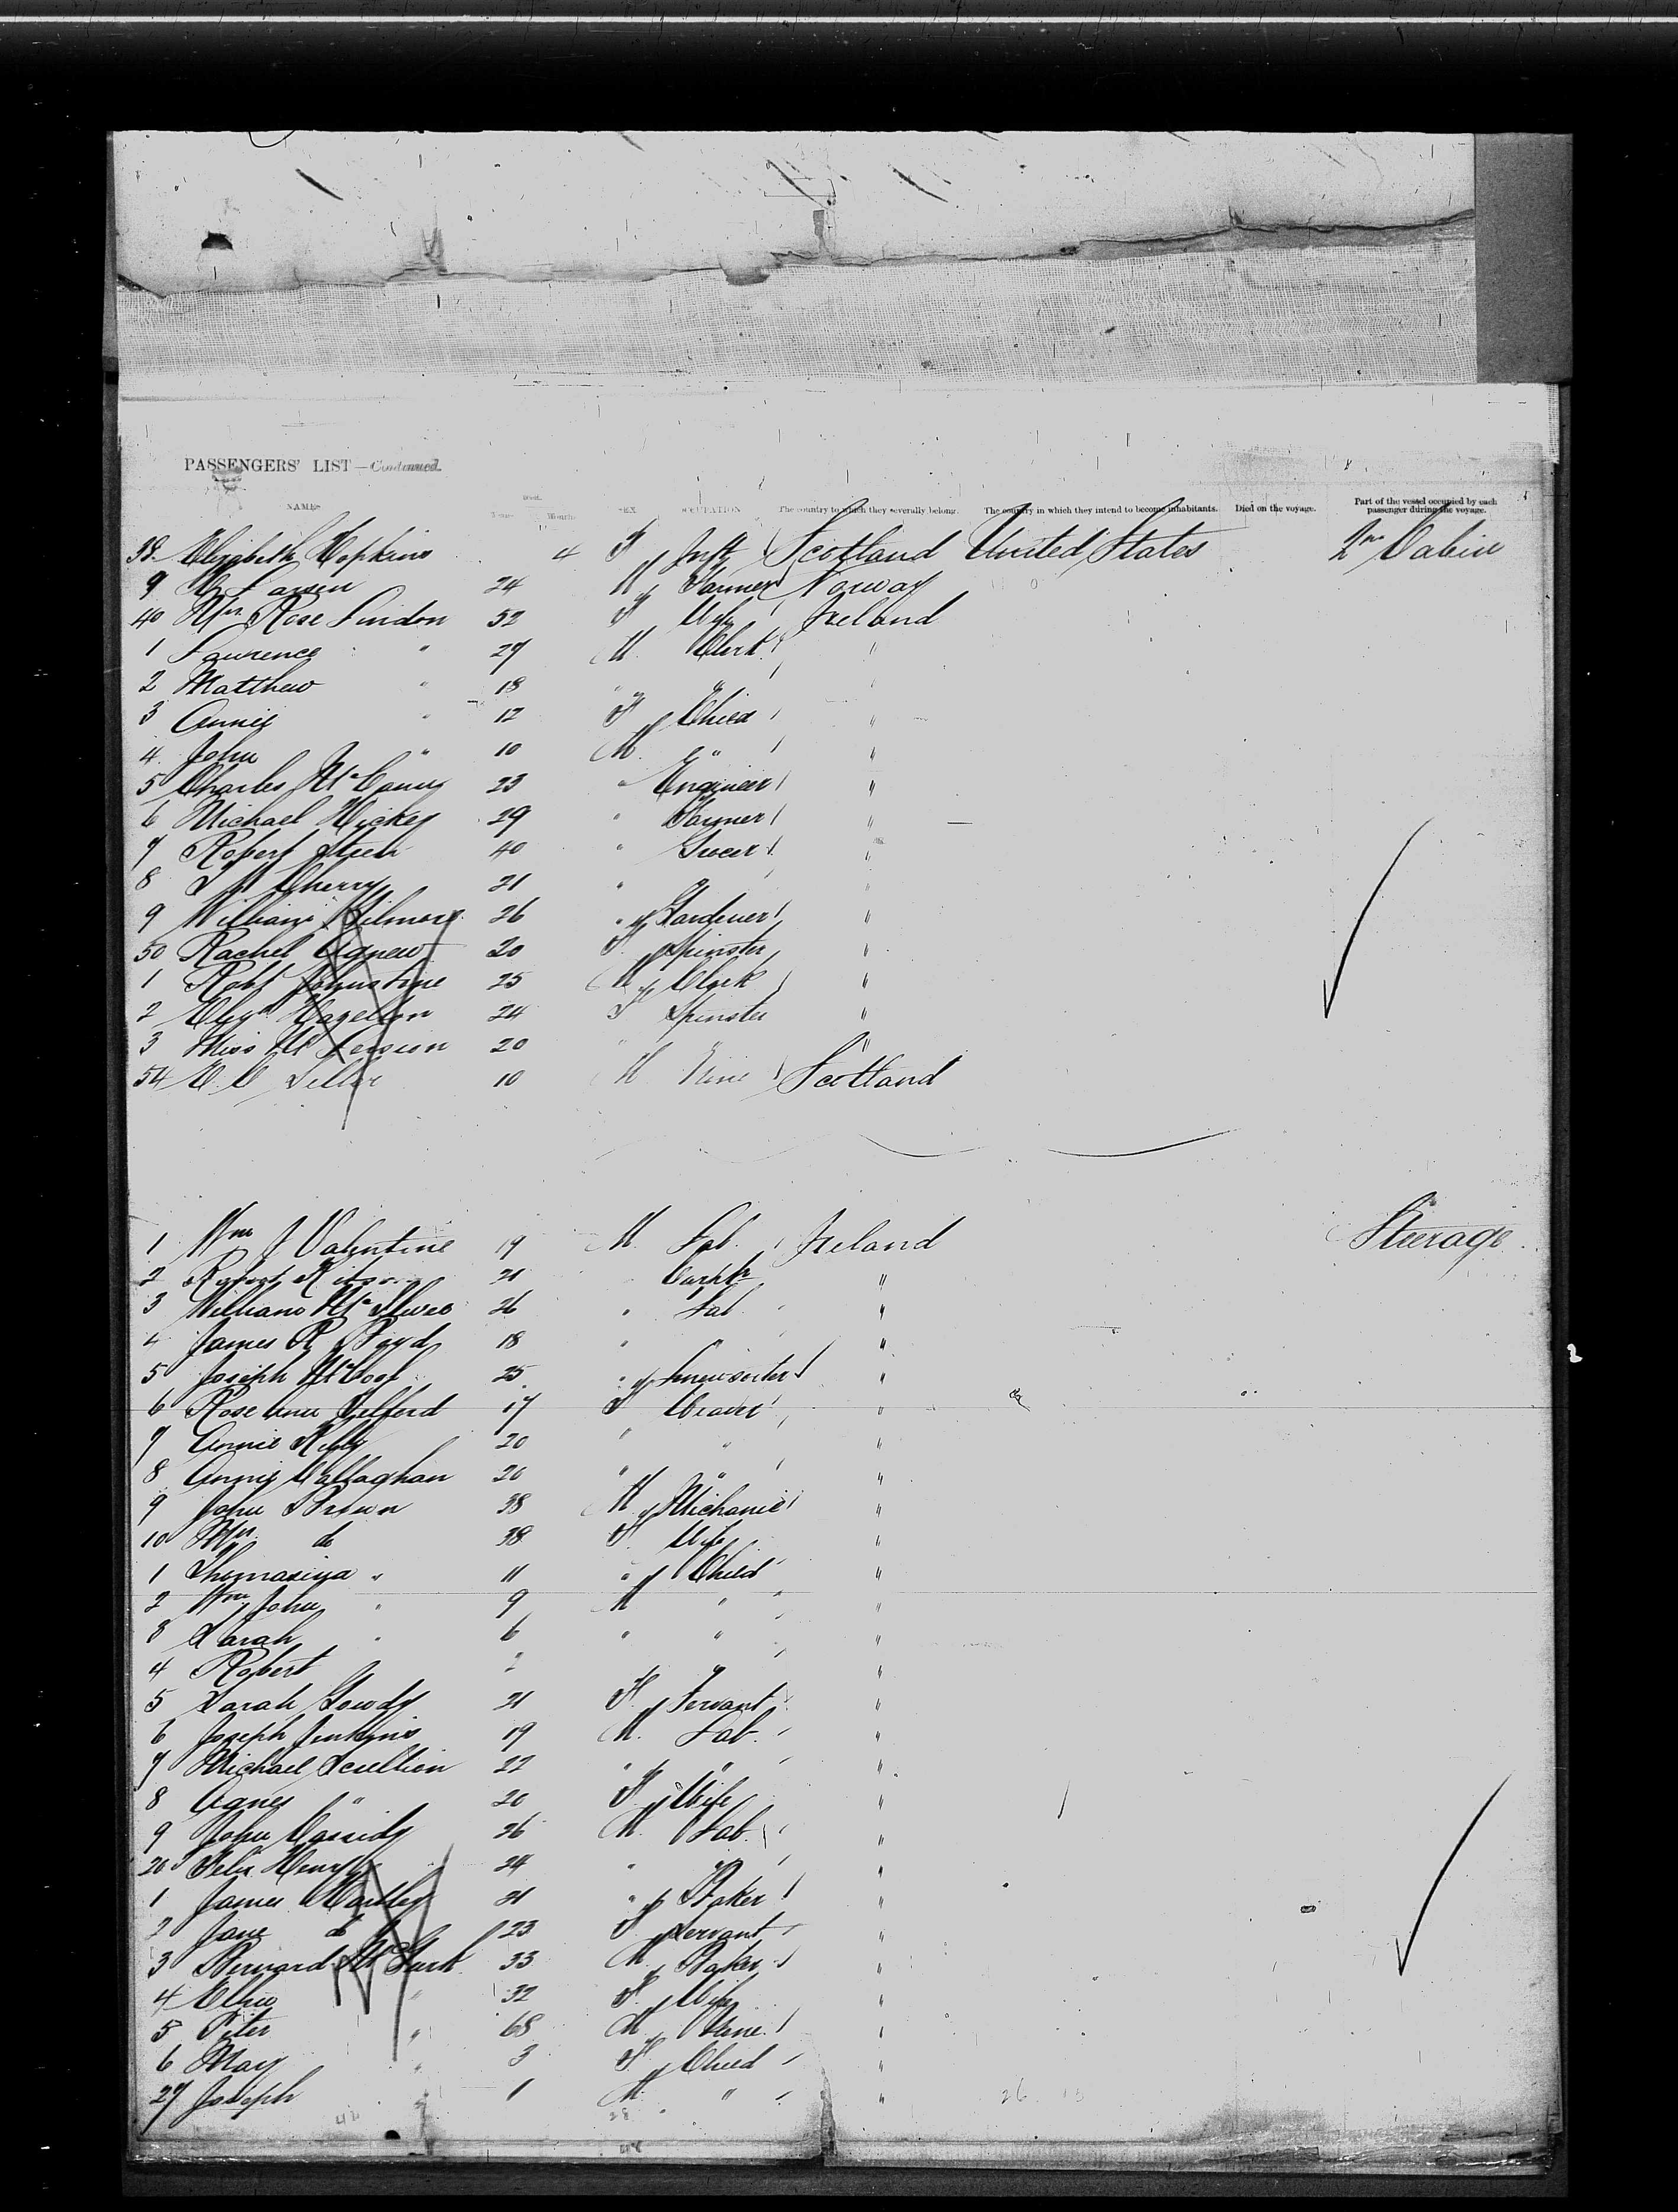 PASSENGERS' LIST — Continued.
NAMES Years Months SEX OCCUPATION The country to which they severally belong. The country in which they intend to become inhabitants. Died on the voyage. Part of the vessel occupied by each passenger during the voyage.
38 Elizabeth Hopkins 4 F Inft Scotland United States 2nd Cabin
9 Larsen 24 M Farmer Norway
40 Mrs Rose Lindon 52 F Wife Ireland
1 Laurence " 27 M. Clerk "
2 Matthew " 18 " " "
3 Annie " 12 F Child "
4 John " 10 M. " "
5 Charles 23 " Engineer "
6 Michael Hickey 29 " Farmer "
7 Robert 40 " Grocer "
8 Cherry 21 " " "
9 William Gilmore 26 " Gardener "
50 Rachel Agnew 20 F Spinster "
1 Robt Johnstone 25 M Clerk "
2 24 F Spinster "
3 Miss 20 " " "
54 10 M None Scotland
1 Wm J Valentine 19 M. Lab. Ireland Steerage
2 Robert 21 " Carptr "
3 William 26 " Lab "
4 James R Boyd 18 " " "
5 Joseph McCool 25 " "
6 Rose Ann Telford 17 F Weaver "
7 Annie 20 " " "
8 Annie Callaghan 20 " " "
9 John Brown 38 M Michanic "
10 Mrs do 38 F Wife "
1 Thomasina " 11 " Child "
2 Wm John " 9 M " "
3 Sarah " 6 " " "
4 Robert " "
5 Sarah Gowdy 21 F. Servant "
6 Joseph Jenkins 19 M. Lab. "
7 Michael Scullion 22 " " "
8 Agnes " 20 F Wife "
9 John Cassidy 26 M. Lab. "
20 Felix Henry 24 " " "
1 James 21 " Baker "
2 Jane do 23 F Servant "
3 Bernard McGurk 33 M Baker "
4 " 32 F. Wife "
5 Peter " 68 M None "
6 May " 3 F Child "
27 Joseph " 1 M. " "